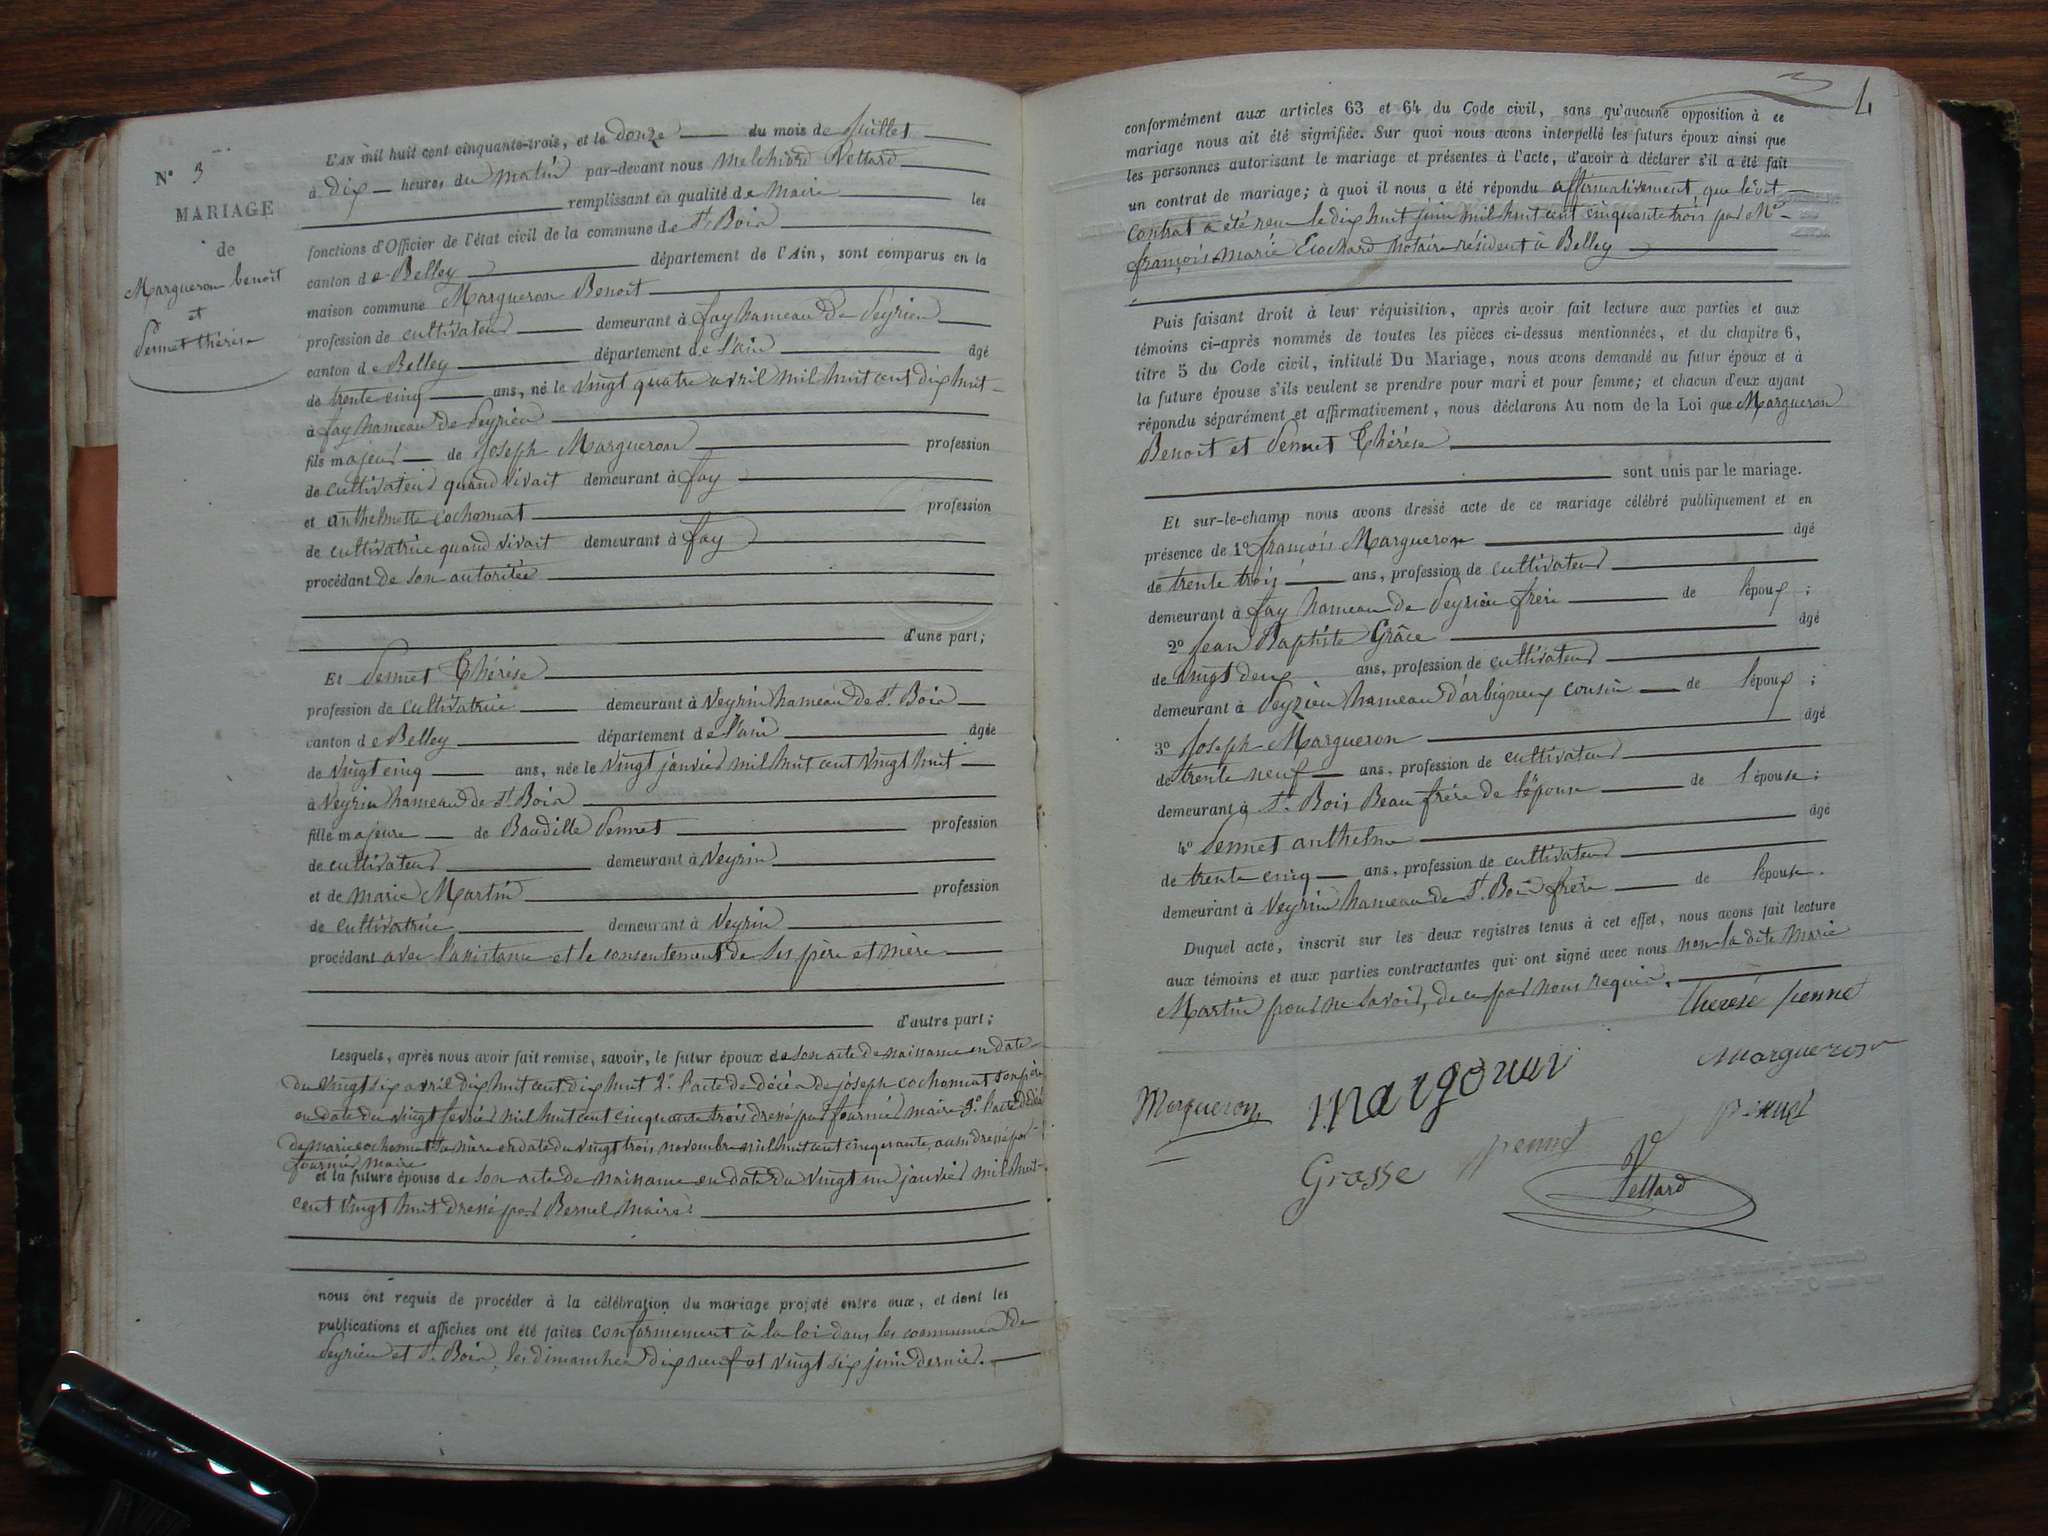 N° 3
MARIAGE
de
Margueron benoit
et
Pennet thérèse
L'AN mil huit cent cinquante-trois, et le douze du mois de Juillet
à dix heures du matin par-devant nous Melchiord Vettard
remplissant en qualité de Maire les
fonctions d'Officier de l'état civil de la commune de St. Bois
canton de Belley département de l'Ain, sont comparus en la
maison commune Margueron Benoit
profession de cultivateur demeurant à fay hameau de Peyrieu
canton de Belley département de l'ain âgé
de trente cinq ans, né le vingt quatre avril mil huit cent dix huit
à fay hameau de Peyrieu
fils majeur de Joseph Margueron profession
de cultivateur quand vivait demeurant à fay
et anthelmette cochonnat profession
de cultivatrice quand vivait demeurant à fay
procédant de son autoritée
d'une part;
Et Pennet Thérèse
profession de cultivatrice demeurant à Veyrin hameau de St. Bois
canton de Belley département de l'ain âgée
de vingt cinq ans, née le vingt janvier mil huit cent vingt huit
à Veyrin hameau de St. Bois
fille majeure de Baudille Pennet profession
de cultivateur demeurant à Veyrin
et de marie Martin profession
de cultivatrice demeurant à Veyrin
procédant avec l'assistance et le consentement de ses père et mère
d'autre part;
Lesquels, après nous avoir fait remise, savoir, le futur époux de son acte de naissance en date
du vingt six avril dix huit cent dix huit 2° l'acte de décès de joseph cochonnat son père
en date du vingt fevrier mil huit cent cinquante trois dressé par fournier maire 3° l'acte de décès
de marie cochonnat sa mère en date du vingt trois novembre mil huit cent cinquante, aussi dressé par
fournier maire
et la future épouse de son acte de naissance en date du vingt un janvier mil huit
cent vingt huit dressé par Bernel Maire
nous ont requis de procéder à la célébration du mariage projeté entre eux, et dont les
publications et affiches ont été faites conformement à la loi dans les communes de
Peyrieu et St. Bois, les dimanches dix neuf et vingt six juin dernier.
4
conformément aux articles 63 et 64 du Code civil, sans qu'aucune opposition à ce
mariage nous ait été signifiée. Sur quoi nous avons interpellé les futurs époux ainsi que
les personnes autorisant le mariage et présentes à l'acte, d'avoir à déclarer s'il a été fait
un contrat de mariage; à quoi il nous a été répondu affirmativement, que le dit
contrat a été reçu le dix huit juin mil huit cent cinquante trois par Me
françois Marie Ecochard notaire résident à Belley
Puis faisant droit à leur réquisition, après avoir fait lecture aux parties et aux
témoins ci-après nommés de toutes les pièces ci-dessus mentionnées, et du chapitre 6,
titre 5 du Code civil, intitulé Du Mariage, nous avons demandé au futur époux et à
la future épouse s'ils veulent se prendre pour mari et pour femme; et chacun d'eux ayant
répondu séparément et affirmativement, nous déclarons Au nom de la Loi que Margueron
Benoit et Pennet Thérèse
sont unis par le mariage.
Et sur-le-champ nous avons dressé acte de ce mariage célébré publiquement et en
présence de 1° françois Margueron âgé
de trente trois ans, profession de cultivateur
demeurant à fay hameau de Peyrieu frère de l'époux;
2° Jean Baptiste Grâce âgé
de vingt deux ans, profession de cultivateur
demeurant à Peyzieu hameau d'arbignieux cousin de l'époux;
3° Joseph Margueron âgé
de trente neuf ans, profession de cultivateur
demeurant à St. Bois Beau frère de l'épouse de l'épouse;
4° Pennet anthelme âgé
de trente cinq ans, profession de cultivateur
demeurant à Veyrin hameau de St. Bois frère de l'épouse.
Duquel acte, inscrit sur les deux registres tenus à cet effet, nous avons fait lecture
aux témoins et aux parties contractantes qui ont signé avec nous non la dite Marie
Martin pour ne savoir, de ce par nous requis.
therese pennet
Margueron
Margueron
pennet
Grasse
pennet
Vettard